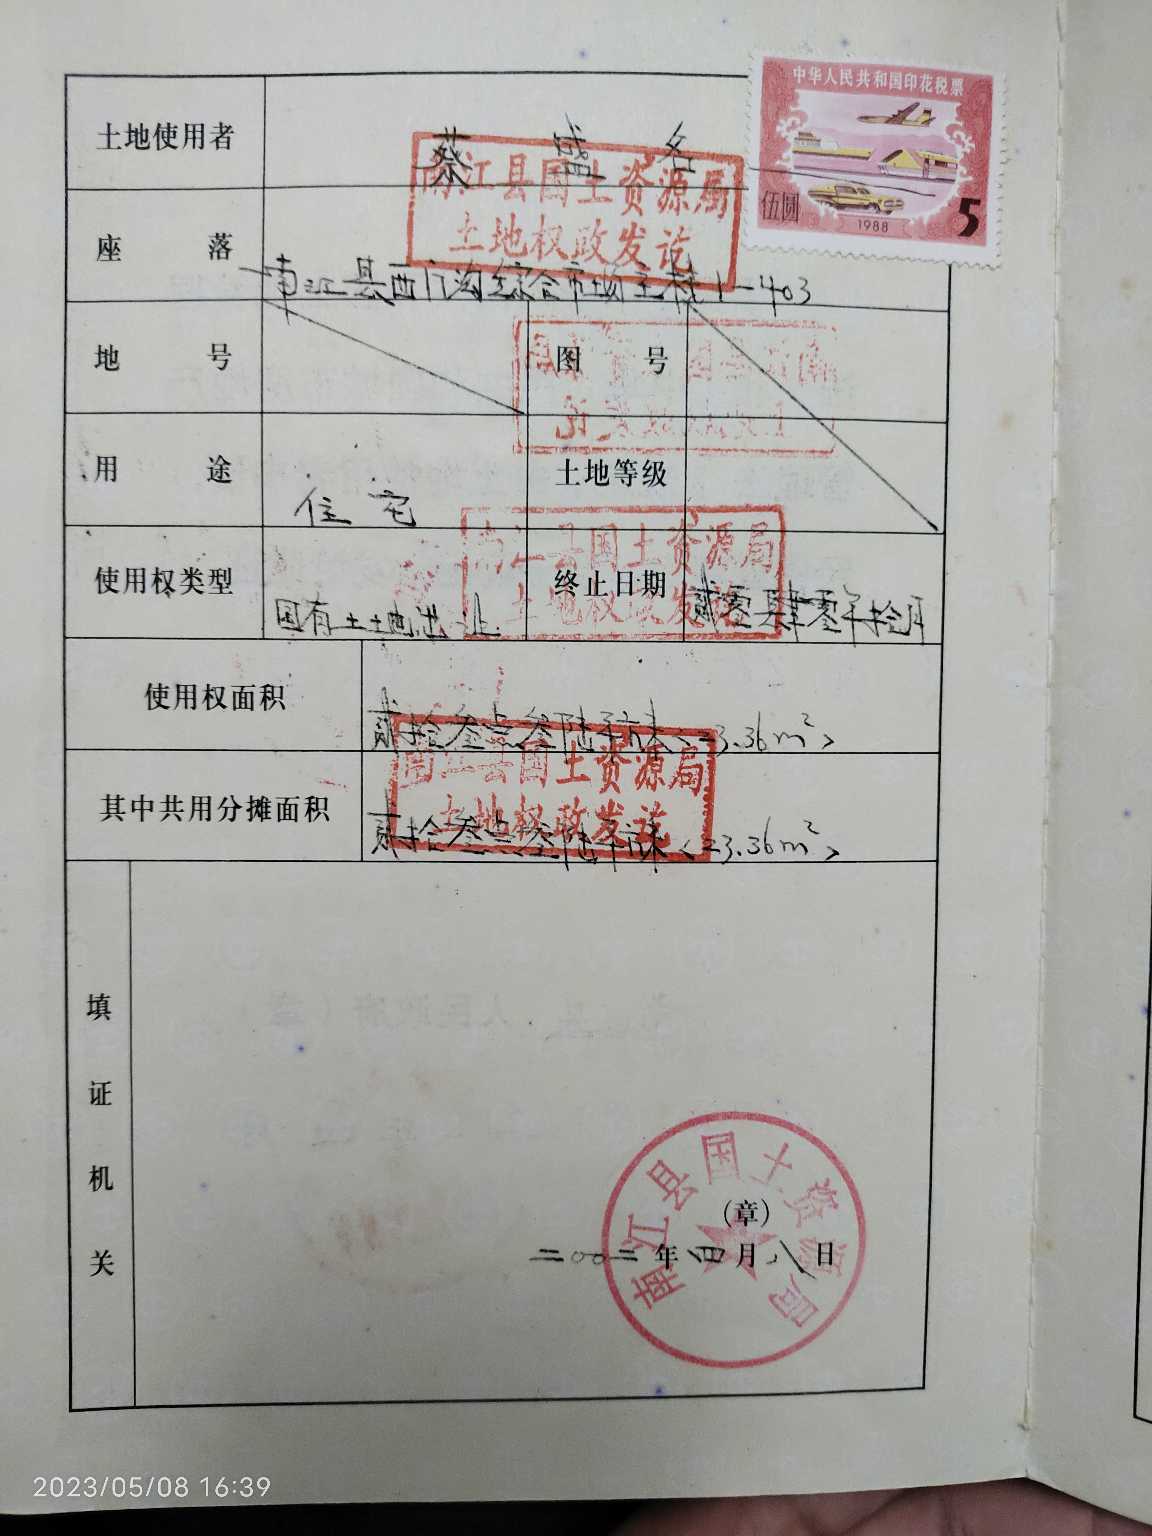 中华人民共和国印花税票
伍圆
1988
5
土地使用者 蔡盛名
南江县国土资源局
土地权政发讫
座落 南江县西门沟综合市场主楼1-403
地号 图号
用途 住宅 土地等级
南江县国土资源局
土地权政发讫
使用权类型 国有土地出让 终止日期 贰零肆零年拾月
使用权面积 贰拾叁点叁陆平方米<23.36m²>
南江县国土资源局
土地权政发讫
其中共用分摊面积 贰拾叁点叁陆平方米<23.36m²>
填证机关
南江县国土资源局
(章)
二00二年四月八日
2023/05/08 16:39